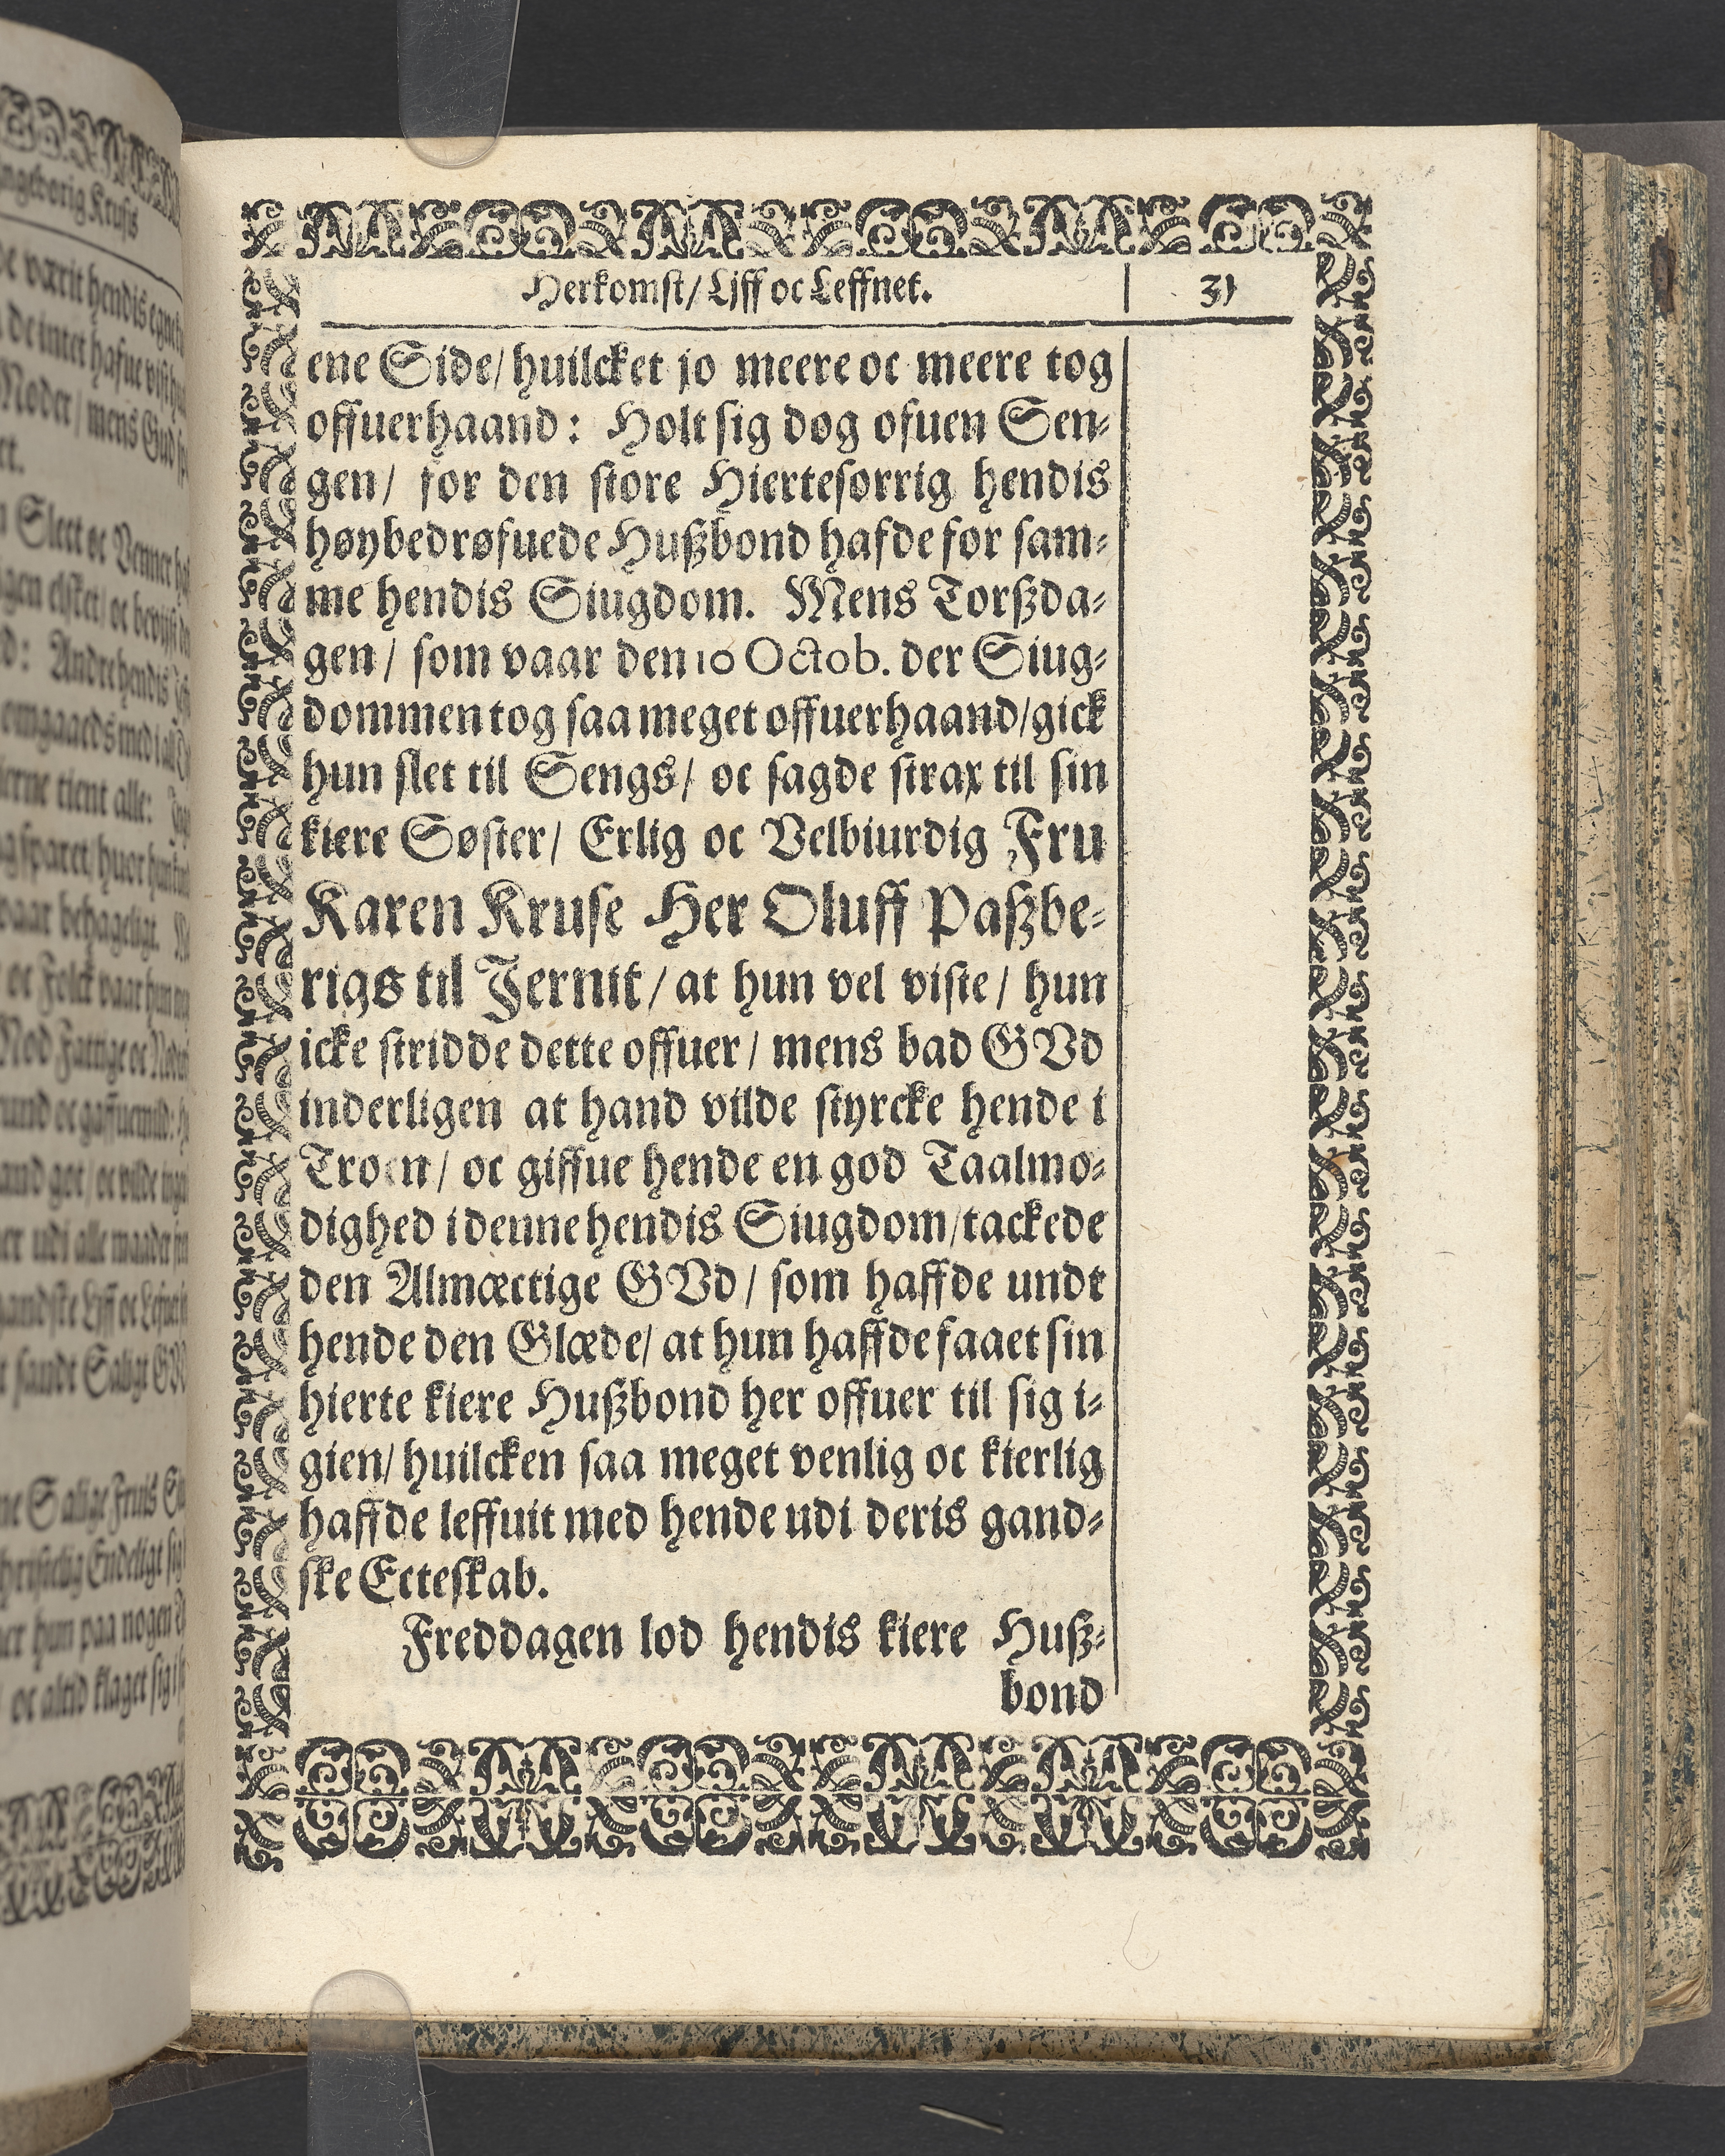 Herkomst/ Lijff oc Leffnet. 31
ene Side/ huilcket jo meere oc meere tog
offuerhaand: Holt sig dog ofuen Sen-
gen/ for den store Hiertesorrig hendis
høybedrøfuede Hußbond hafde for sam-
me hendis Siugdom. Mens Torßda-
gen/ som vaar den 10 Octob. der Siug-
dommen tog saa meget offuerhaand/ gick
hun slet til Sengs/ oc sagde strax til sin
kiere Søster/ Erlig oc Velbiurdig Fru
Karen Kruse Her Oluff Paßbe-
rigs til Jernit/ at hun vel viste/ hun
icke stridde dette offuer/ mens bad GVd
inderligen at hand vilde styrcke hende i
Troen/ oc giffue hende en god Taalmo-
dighed i denne hendis Siugdom/ tackede
den Almæctige GVd/ som haffde undt
hende den Glæde/ at hun haffde faaet sin
hierte kiere Hußbond her offuer til sig i-
gien/ huilcken saa meget venlig oc kierlig
haffde leffuit med hende udi deris gand-
ske Ecteskab.
Freddagen lod hendis kiere Huß-
bond